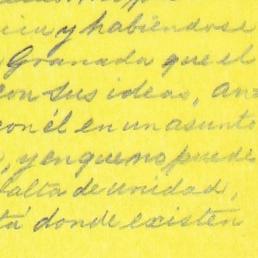 y habiéndose
Granada que el
con sus ideas, An
con él en un asunto
, y en que no puede
falta de unidad,
tá donde existen